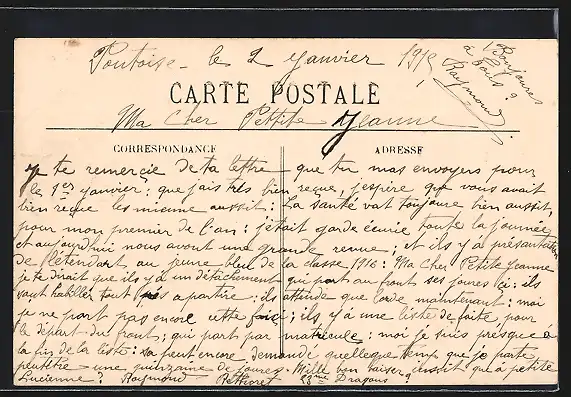 Pontoise - le 2 Janvier 1915
Bonjoures
à tous ?
Raymond.
CARTE POSTALE
Ma Cher Petite Jeanne
CORRESPONDANCE
ADRESSE
je te remerçie de ta lettre que tu mas envoyers pour
le 1er janvier : que jais très bien reçue, j'espère que vous avait
bien reçue les mienne aussit : La santé vat toujoure bien aussit,
pour mon premier de l'an : j'était garde écurie toute la journée,
et aujourd'hui nous avont une grande revue ; et ils y'à présantation
de l'étendart au jeune bleu de la classe 1916 : Ma Cher Petite Jeanne
je te dirait que ils y'à un détachement qui part au front ses joures çi : ils
sont habillér tout près a partire ; ils attende que lorde maintenant : moi
je ne part pas encore cette fois çi ; ils y'à une liste de faite pour
le départ du front ; qui part par matricule : moi je suis presque à
la fin de la liste : sa peut encore demandé quelleque temp que je parte
peutêtre une quinzaine de joures. Mille bon baiser aussit que à petite
Lucienne ? Raymond Dragons ?